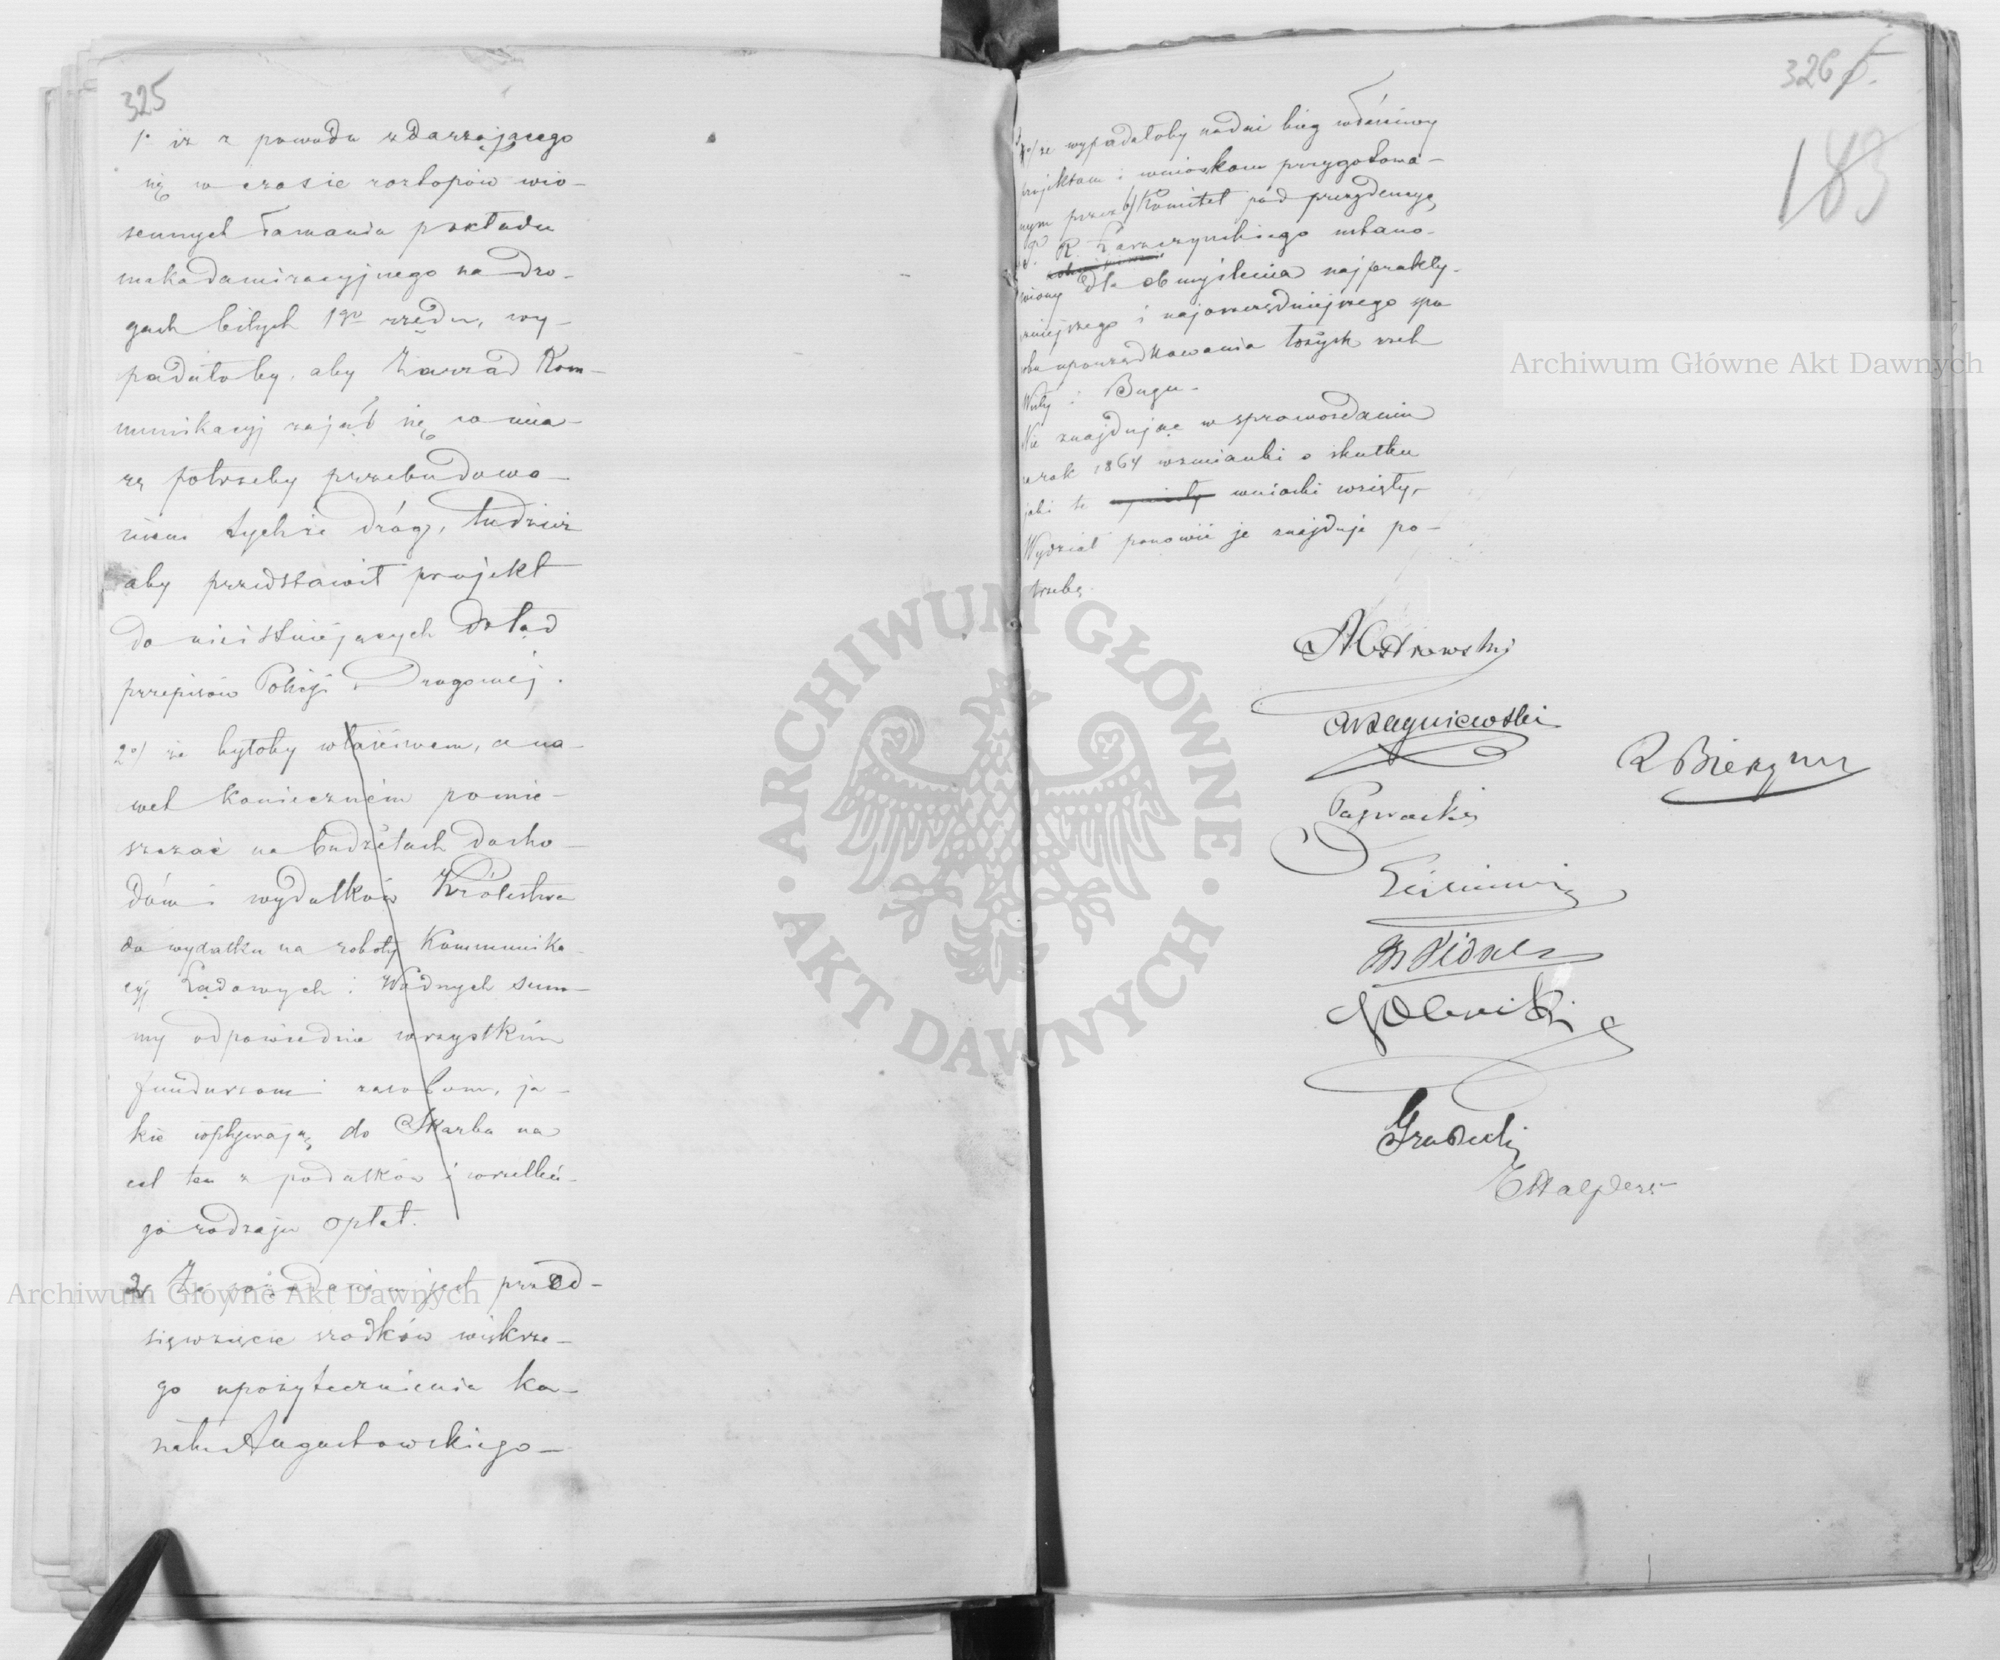 325
1° iż z powodu zdarzającego
się w czasie roztopów wio-
sennych łamania pokładu
makadamizacyjnego na dro-
gach bitych 1go rzędu, wy-
padałoby, aby Zarząd Kom-
munikacyj zajął się w mia-
rę potrzeby przebudowa-
niem tychże dróg, tudzież
aby przedstawił projekt
do nieistniejących dotąd
przepisów Policyi Drogowej.
2°/ że byłoby właściwem, a na-
wet koniecznem pomie-
szczać na budżetach docho-
dów i wydatków Królestwa
do wydatku na roboty Kommunika-
cyj Lądowych i Wodnych sum-
my odpowiednie wszystkim
funduszom i zasobom, ja-
kie wpływają do Skarbu na
cel ten z podatków i wszelkie-
go rodzaju opłat.
2, Że pożądanem jest przed-
sięwzięcie środków większe-
go upożytecznienia ka-
nału Augustowskiego-
326
183
że wypadałoby nadać bieg właściwy
projektom i wnioskom przygotowa-
nym przez b/ Komitet pod prezydencyą
R. Łaszczyńskiego ustano-
wiony dla obmyślenia najprakty-
czniejszego i najoszczędniejszego spo
sobu uporządkowania łożysk rzek
Wisły i Bugu.
Nie znajdując w sprawozdaniu
za rok 1864 wzmianki o skutku
jaki te wnioski wzięły,
Wydział ponowić je znajduje po-
trzebę.
A Ostrowski
Wagniewski
R Bierzyn
Gradecki
Halpert
Archiwum Główne Akt Dawnych
Archiwum Główne Akt Dawnych
ARCHIWUM GŁÓWNE
AKT DAWNYCH